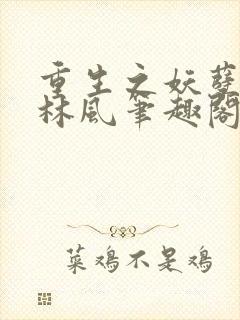 重生之妖孽
林风笔趣阁
菜鸡不是鸡